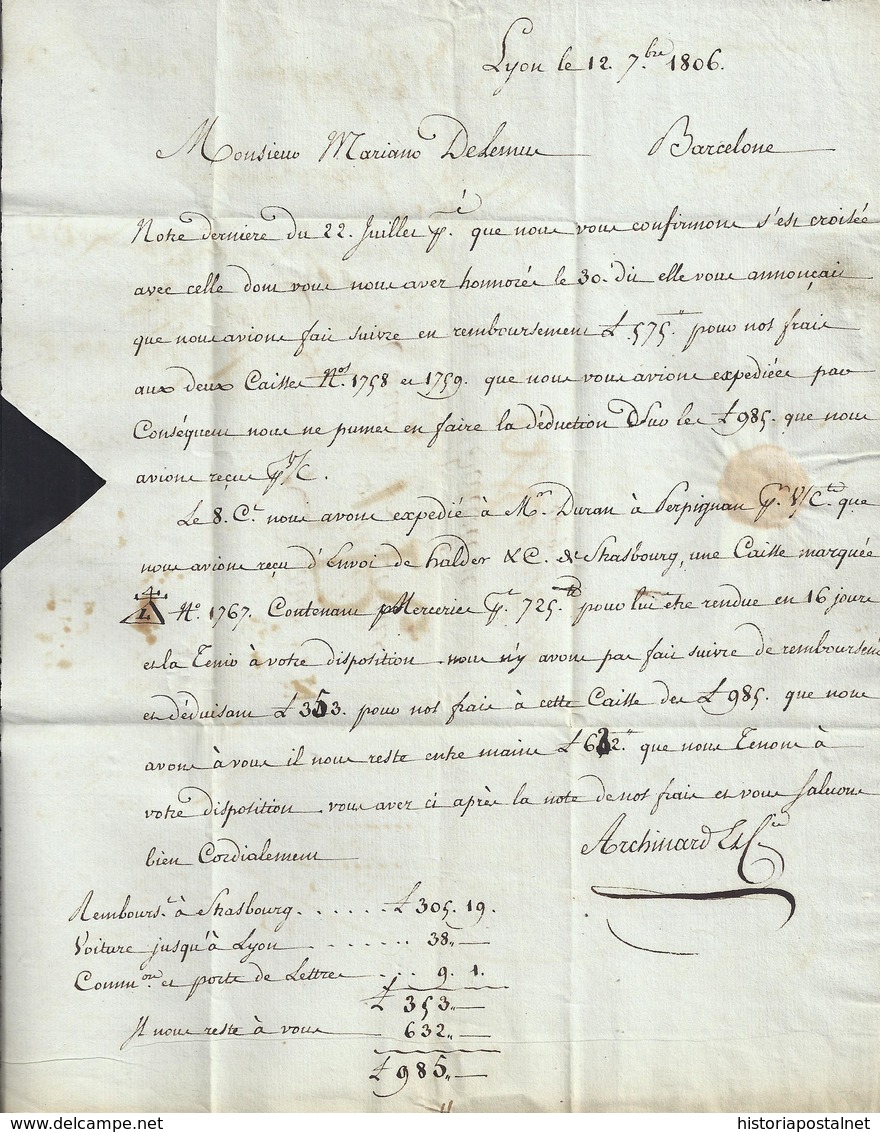 Lyon le 12. 7.bre 1806.
Monsieur Mariano Delemus Barcelone
Notre derniere du 22. Juillet p.é que nous vous confirmons s'est croisée
avec celle dont vous nous avez honnorés le 30. dit elle vous annonçait
que nous avions fait suivre en remboursement £ 575." pour nos frais
aux deux Caisses Nos. 1758 et 1759. que nous vous avions expediées par
Conséquent nous ne pumes en faire la déduction Sur les £ 985. que nous
avions reçus p v/C.
Le 8. Ct. nous avons expedié à Mr. Duran à Perpignan pr. V/Cte. que
nous avions reçu d'Envoi de halder & C. de Strasbourg, une Caisse marquée
4 L No. 1767. Contenant Mercerie pt. 725. pour lui être rendue en 16 jours
et la Tenir à votre disposition nous n'y avons pas fait suivre de remboursement
et déduisant £ 353. pour nos frais à cette Caisse des £ 985. que nous
avons à vous il nous reste entre mains £ 632." que nous Tenons à
votre disposition. vous avez ci après la note de nos frais et vous Saluons
bien Cordialement
Archinard & Cie
Rembours.t à Strasbourg ...... £ 305. 19.
Voiture jusqu'à Lyon ....... 38.,—
Comm.on et ports de Lettres .... 9. 1.
£ 353.,—
Il nous reste à vous 632.,—
£ 985.,—
historiapostalnet